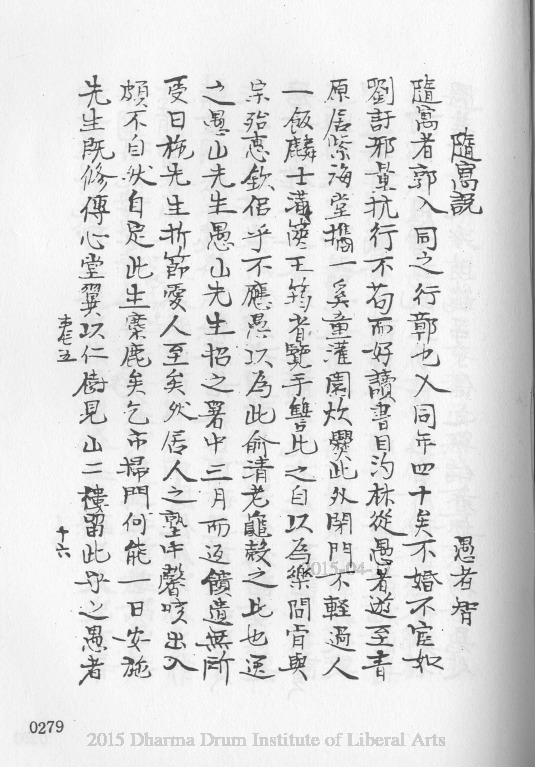 隨寓說
愚者智
隨寓者郭入同之行鄣也入同年四十矣不婚不宦如
劉訏邪暈抗行不苟而好讀書自溈林從愚者遊至青
原居紫海堂攜一奚童灌園炊爨此外閉門不輕過人
一飯麟士滿篋王筠省覽手讐此之自以為樂間肯與
宗殆惠欽侶乎不應愚以為此俞清老龜殼之比也逕
之愚山先生愚山先生招之署中三月而返饋遺無所
受曰施先生折節愛人至矣然居人之塾中謦咳出入
頗不自然自足此生麋鹿矣乞市掃門何能一日安施
先生既修傳心堂翼以仁樹見山二樓留此乎之愚者
十六
0279
2015 Dharma Drum Institute of Liberal Arts